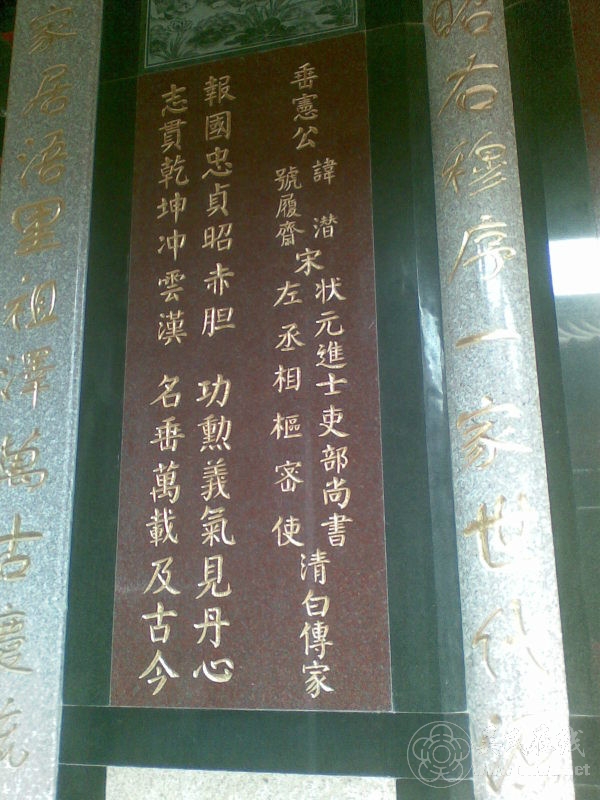 昭右穆序一家世代源
垂憲公 諱潜 號履齋 宋狀元進士吏部尚書 左丞相樞密使 清白傳家
報國忠貞昭赤胆 功勳義氣見丹心
志貫乾坤冲雲漢 名垂萬載及古今
家居浯里祖澤萬古慶流